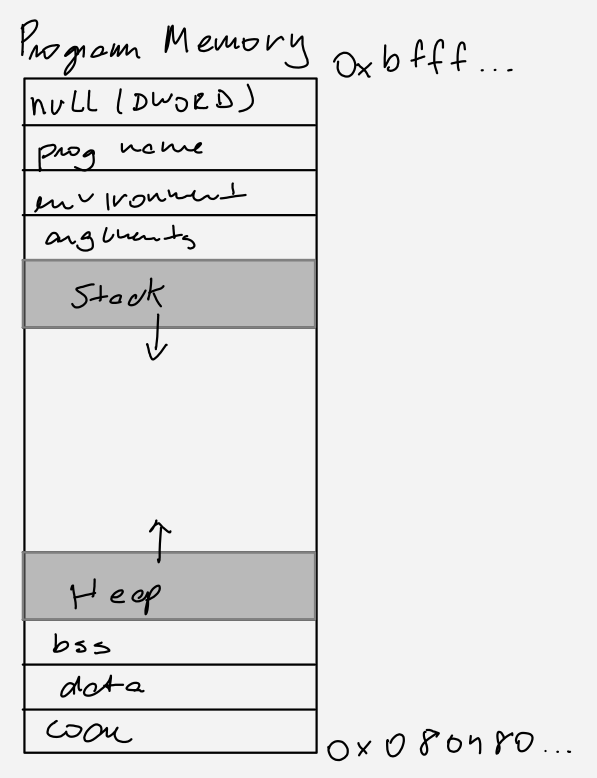 Program Memory
0xbfff...
null (DWORD)
prog name
environment
arguments
Stack
Heap
bss
data
code
0x080480...